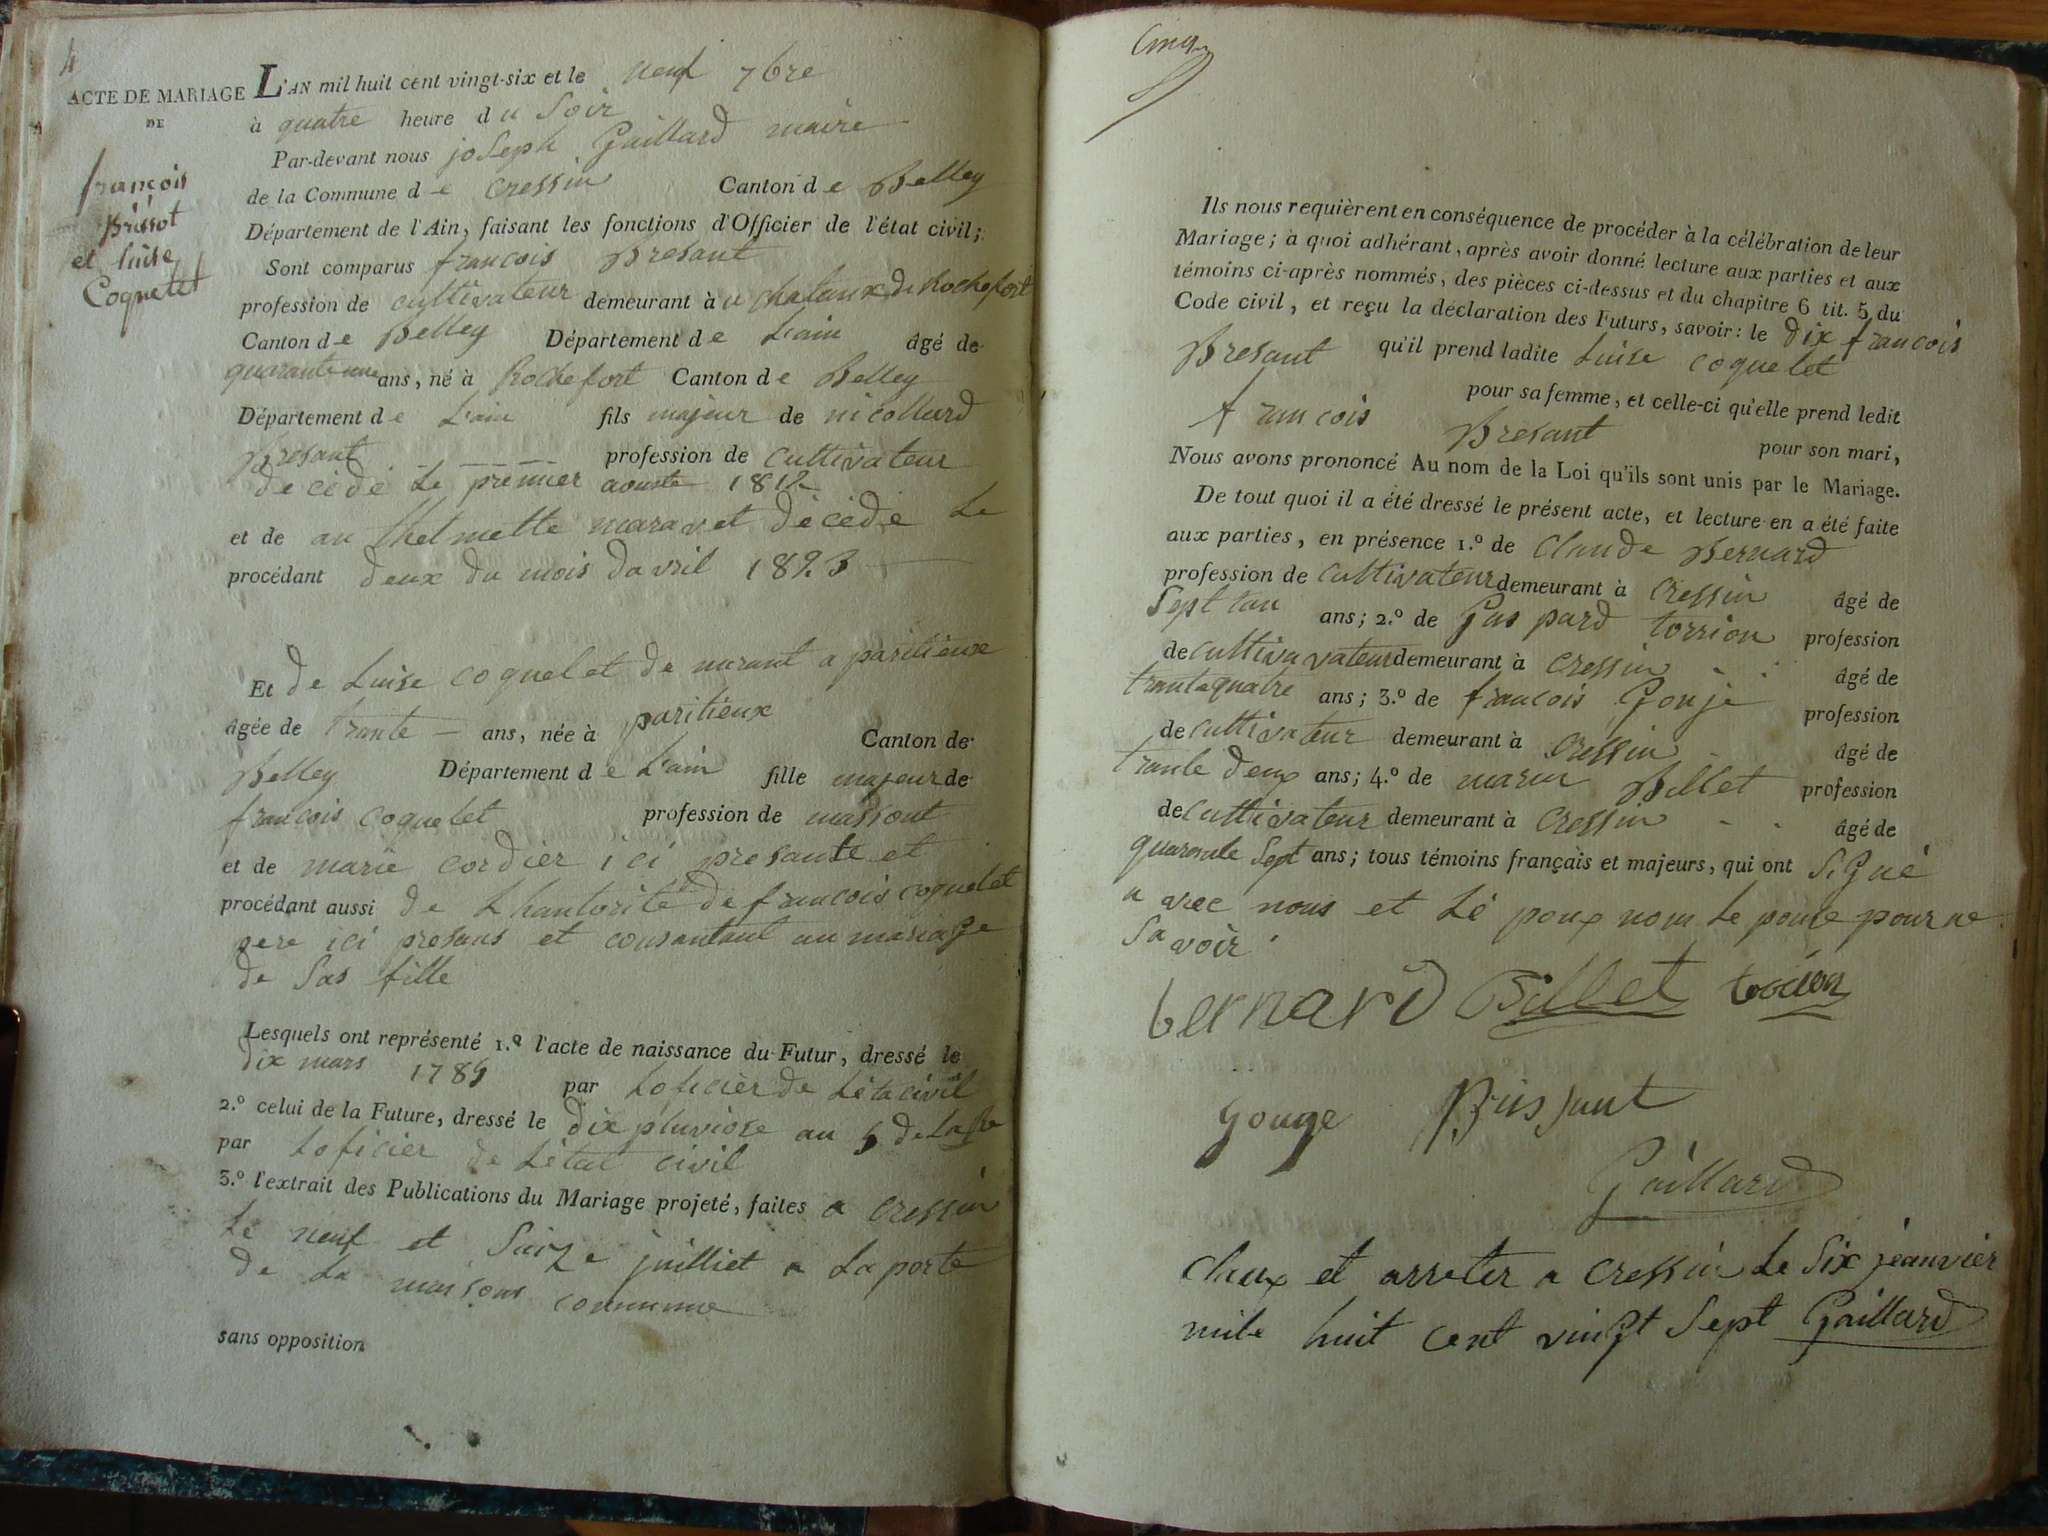 4
ACTE DE MARIAGE
DE
françois
Brisot
et luise
Coquelet
L'AN mil huit cent vingt-six et le neuf 7bre
à quatre heure du Soir
Par-devant nous joseph Gaillard maire
de la Commune de Cressin Canton de Belley
Département de l'Ain, faisant les fonctions d'Officier de l'état civil;
Sont comparus francois Bresant
profession de cultivateur demeurant àu chataux de Rochefort
Canton de Belley Département de L'ain âgé de
quarante une ans, né à Rochefort Canton de Belley
Département de L'ain fils majeur de nicollard
Bresant profession de cultivateur
décédé Le premier aouste 1812
et de an thelmette maravet décédé Le
procédant deux du mois davril 1823
Et de Luise coquelet de murant a paritieux
âgée de trante ans, née à paritieux Canton de
Belley Département de L'ain fille majeur de
francois coquelet profession de massont
et de marie cordier ici presante et
procédant aussi de Lhautorité de francois coquelet
pere ici presans et consantant au mariage
de Sas fille
Lesquels ont représenté 1.º l'acte de naissance du Futur, dressé le
dix mars 1785 par Loficier de Léta civil
2.º celui de la Future, dressé le dix pluviose an 5 de La
par Loficier de Létat civil
3.º l'extrait des Publications du Mariage projeté, faites a Cressin
Le neuf et Saize juilliet a La porte
de La maison commune
sans opposition
Cinq
Ils nous requièrent en conséquence de procéder à la célébration de leur
Mariage; à quoi adhérant, après avoir donné lecture aux parties et aux
témoins ci-après nommés, des pièces ci-dessus et du chapitre 6 tit. 5 du
Code civil, et reçu la déclaration des Futurs, savoir: le dix francois
Bresant qu'il prend ladite Luise coquelet
pour sa femme, et celle-ci qu'elle prend ledit
francois Bresant pour son mari,
Nous avons prononcé Au nom de la Loi qu'ils sont unis par le Mariage.
De tout quoi il a été dressé le présent acte, et lecture en a été faite
aux parties, en présence 1.º de Claude Bernard
profession de cultivateur demeurant à Cressin âgé de
Sept tan ans; 2.º de Gas pard torrion profession
de cultivavateur demeurant à Cressin âgé de
trantequatre ans; 3.º de francois Gonje profession
de cultivateur demeurant à Cressin âgé de
trante deux ans; 4.º de Billet profession
de cultivateur demeurant à Cressin âgé de
quarante Sept ans; tous témoins français et majeurs, qui ont Signé
avec nous et Lé poux nom Le pouse pour ne
Savoir
bernard Billet torrion
gouge Brissant
Gaillard
Claux et arreter a Cressin Le Six jeanvier
mile huit cent vingt Sept Gaillard